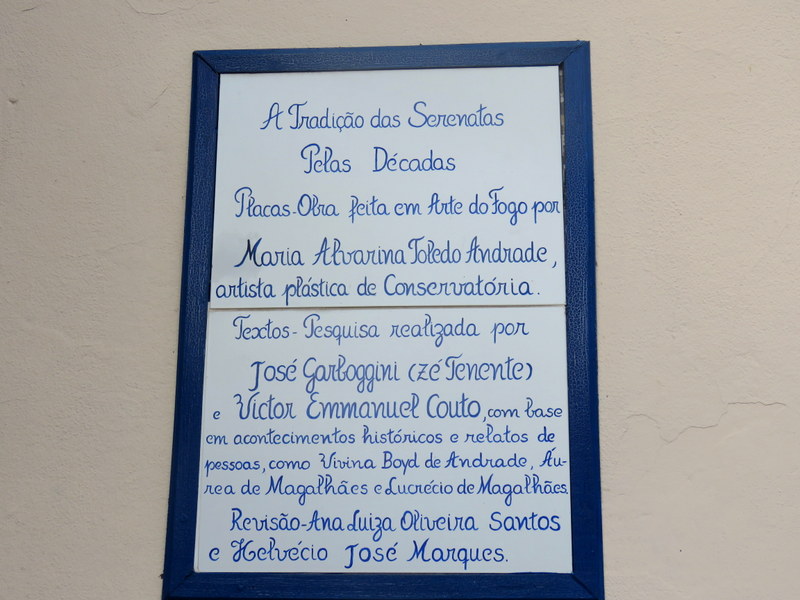 A Tradição das Serenatas
Pelas Décadas
Placas-Obra feita em Arte do Fogo por
Maria Alvarina Toledo Andrade,
artista plástica de Conservatória.
Textos-Pesquisa realizada por
José Garboggini (Zé Tenente)
e Victor Emmanuel Couto, com base
em acontecimentos históricos e relatos de
pessoas, como Vivina Boyd de Andrade, Áu-
rea de Magalhães e Lucrécio de Magalhães.
Revisão-Ana Luiza Oliveira Santos
e Helvécio José Marques.